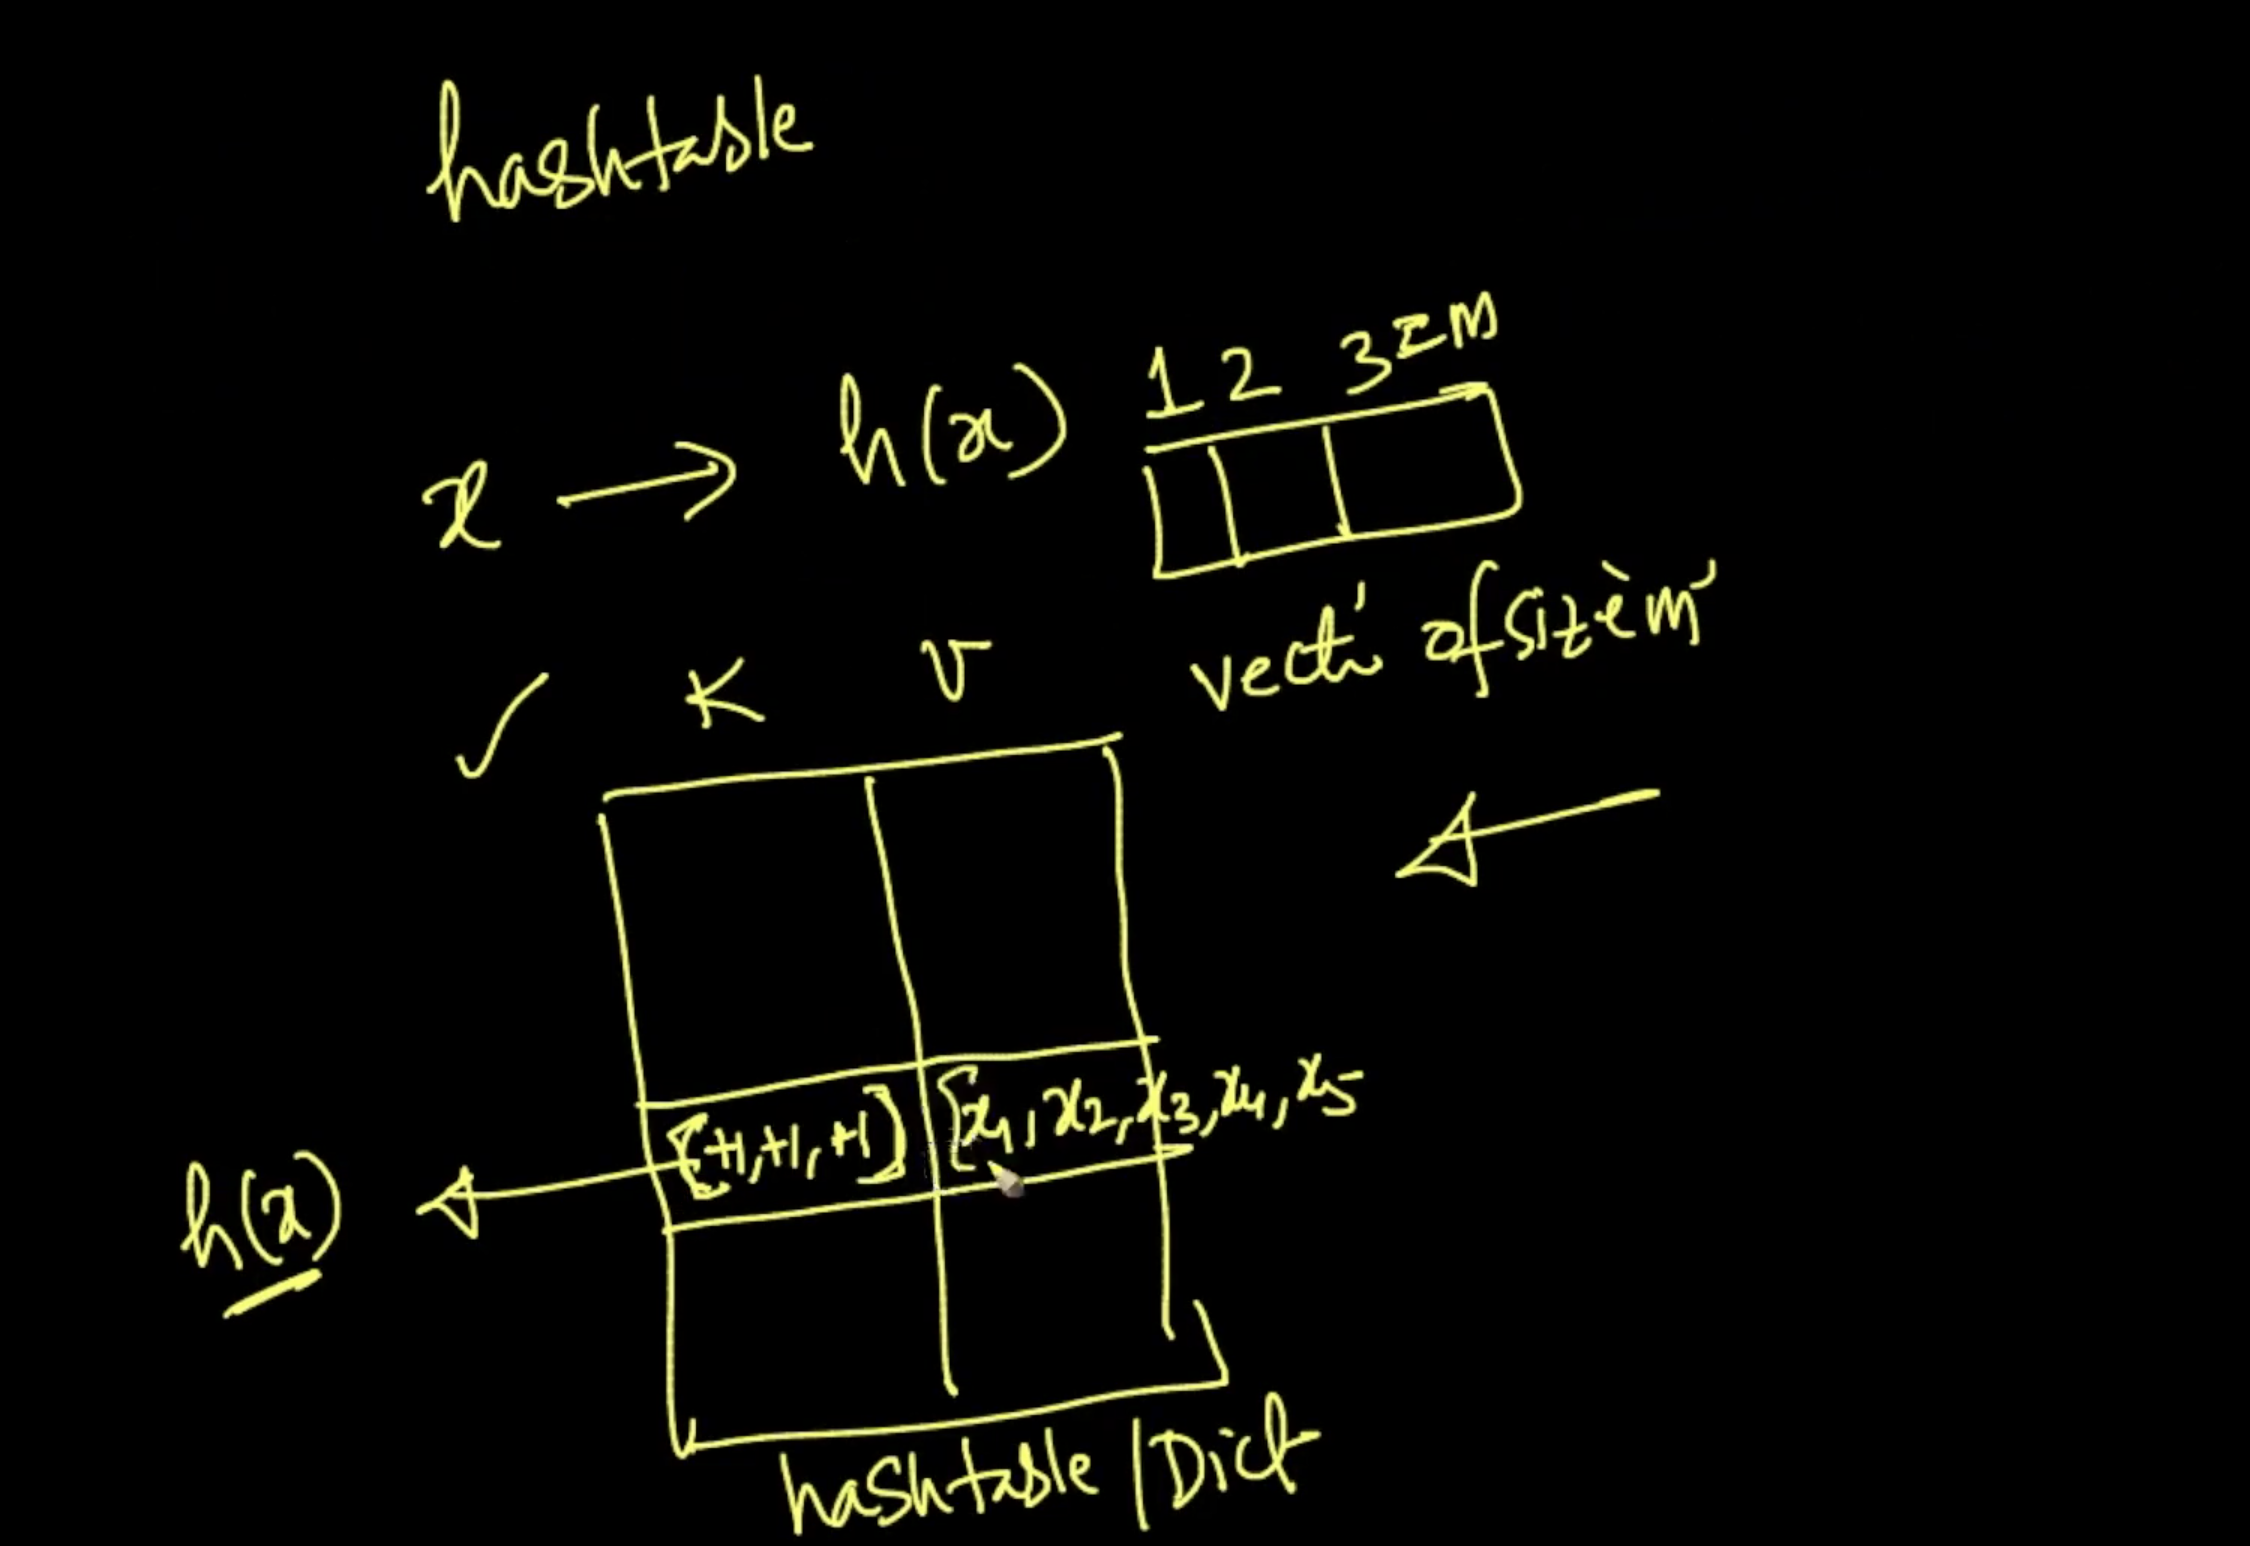 hashtable
1 2 3 = m
x → h(x)
vector of size 'm'
K V
[+1,+1,+1] [x1, x2, x3, x4, x5
h(x)
hashtable / Dict